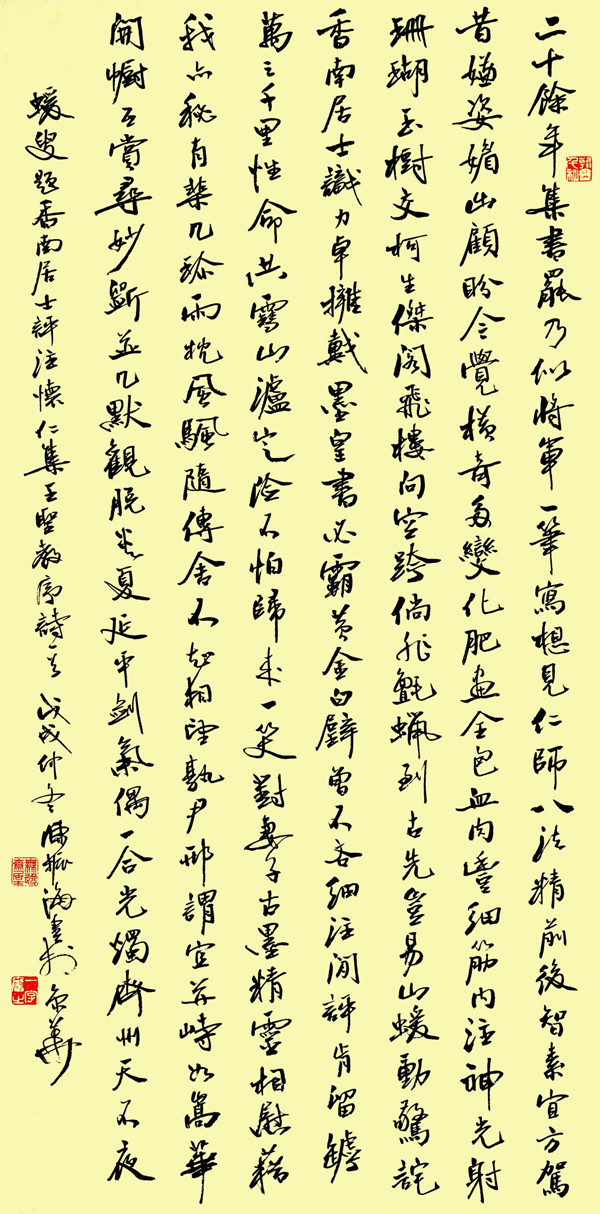 二十餘年集書罷乃似將軍一筆寫想見仁師八法精前後智素宜方駕
昔嫌姿媚出顧盼今覺橫奇多變化肥畫全包血肉豐細筋內注神光射
珊瑚玉樹交柯生傑閣飛樓向空跨倘非氈蠟到古先豈易山蝯動驚詫
香南居士識力卓擁戴墨皇書必霸黃金白璧曾不吝細注閒評肯留罅
萬三千里性命共雪山瀘定險不怕歸來一笑對妻子古墨精靈相慰藉
我亦秘有棐几珍雨枕風颿隨傳舍不知相望孰尹邢謂宜並峙如嵩華
開幮互賞尋妙斲並几默觀脫炎夏延平劍氣偶一合光燭齊州天不夜
蝯叟題香南居士評注懷仁集王聖教序詩一首 戊戌仲冬陳振海書於京華